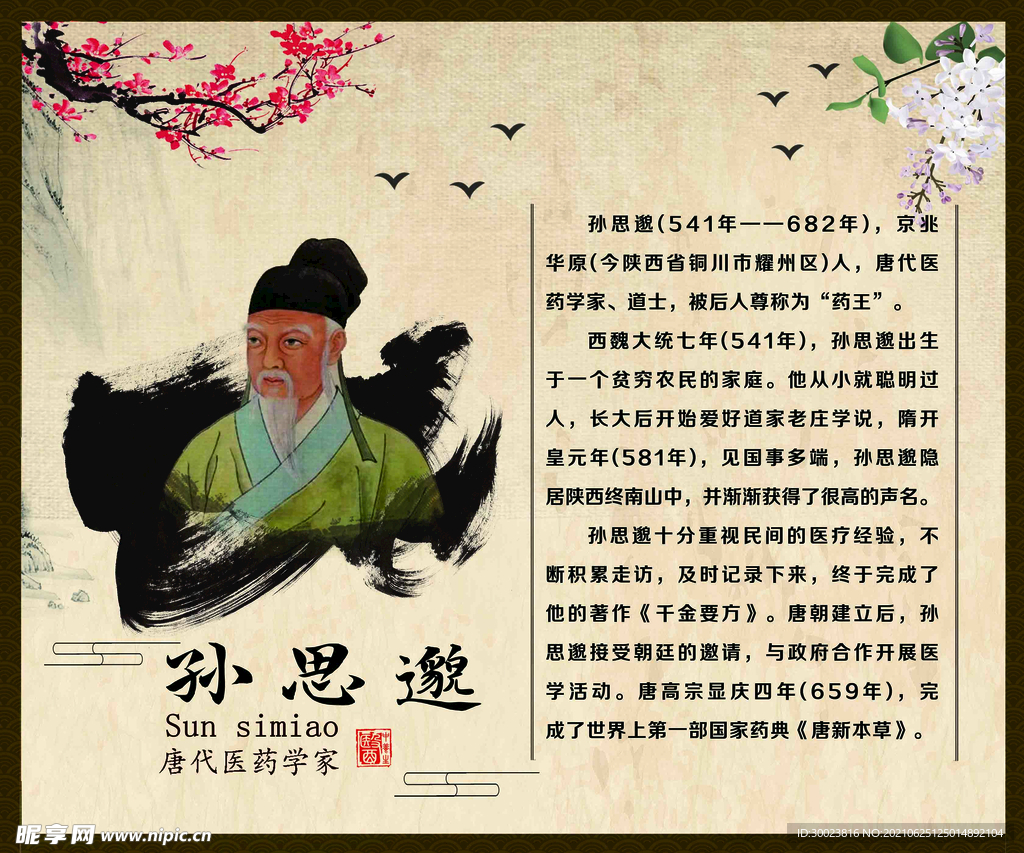 孙思邈(541年——682年)，京兆
华原(今陕西省铜川市耀州区)人，唐代医
药学家、道士，被后人尊称为“药王”。
西魏大统七年(541年)，孙思邈出生
于一个贫穷农民的家庭。他从小就聪明过
人，长大后开始爱好道家老庄学说，隋开
皇元年(581年)，见国事多端，孙思邈隐
居陕西终南山中，并渐渐获得了很高的声名。
孙思邈十分重视民间的医疗经验，不
断积累走访，及时记录下来，终于完成了
他的著作《千金要方》。唐朝建立后，孙
思邈接受朝廷的邀请，与政府合作开展医
学活动。唐高宗显庆四年(659年)，完
成了世界上第一部国家药典《唐新本草》。
孙思邈
Sun simiao
唐代医药学家
昵享网 www.nipic.cn
ID:30023816 NO:20210625125014892104